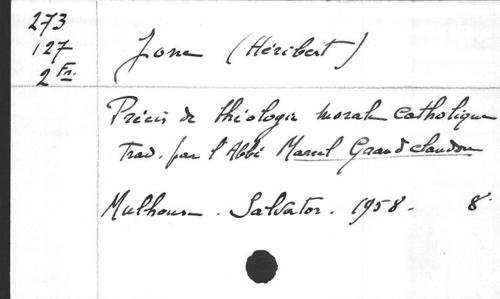 273
127
2 Fr.
Jone (Héribert)
Précis de théologie morale catholique
Trad. par l'Abbé Marcel Grandclaudon
Mulhouse. Salvator. 1958. 8°